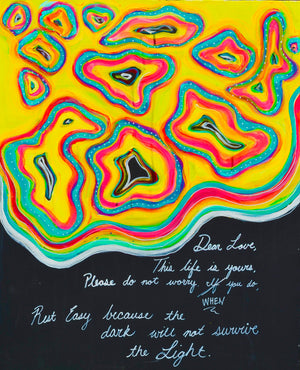 Dear Love,
This life is yours,
Please do not worry. If you do,
WHEN
Rest Easy because the
dark will not survive
the Light.